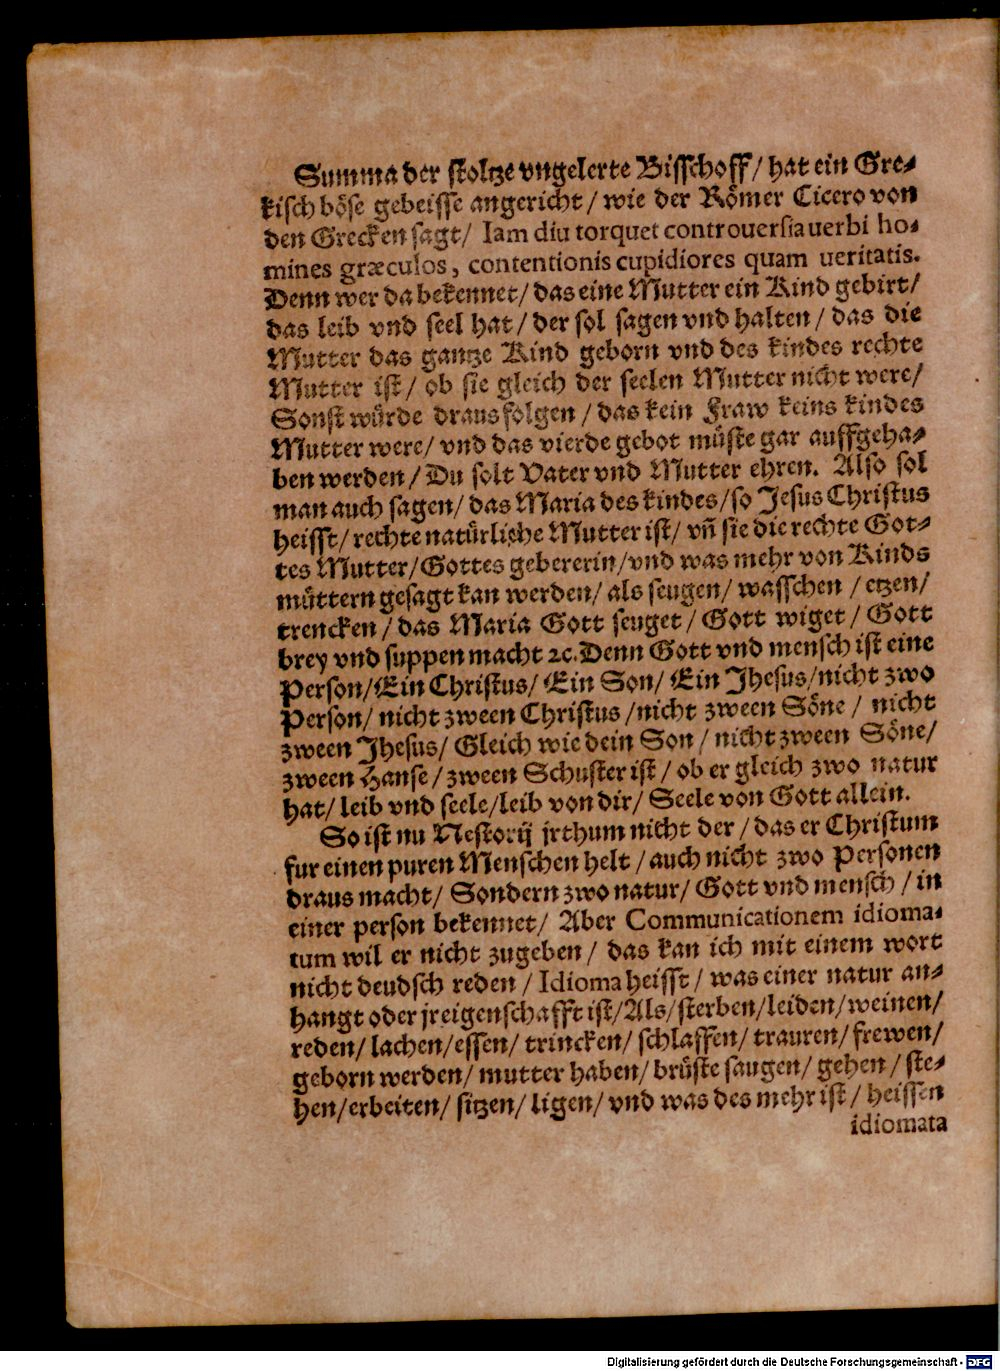 Summa der stoltze vngelerte Bisschoff/ hat ein Gre-
kisch böse gebeisse angericht/ wie der Römer Cicero von
den Grecken sagt/ Iam diu torquet controuersia uerbi ho-
mines græculos, contentionis cupidiores quam ueritatis.
Denn wer da bekennet/ das eine Mutter ein Kind gebirt/
das leib vnd seel hat/ der sol sagen vnd halten/ das die
Mutter das gantze Kind geborn vnd des kindes rechte
Mutter ist/ ob sie gleich der seelen Mutter nicht were/
Sonst würde draus folgen/ das kein Fraw keins kindes
Mutter were/ vnd das vierde gebot müste gar auffgeha-
ben werden/ Du solt Vater vnd Mutter ehren. Also sol
man auch sagen/ das Maria des kindes/ so Jesus Christus
heisst/ rechte natürliche Mutter ist/ vñ sie die rechte Got-
tes Mutter/ Gottes gebererin/ vnd was mehr von Kinds
müttern gesagt kan werden/ als seugen/ wasschen/ etzen/
trencken/ das Maria Gott seuget/ Gott wiget/ Gott
brey vnd suppen macht ꝛc. Denn Gott vnd mensch ist eine
Person/ Ein Christus/ Ein Son/ Ein Jhesus/ nicht zwo
Person/ nicht zween Christus/ nicht zween Söne/ nicht
zween Jhesus/ Gleich wie dein Son/ nicht zween Söne/
zween Hanse/ zween Schuster ist/ ob er gleich zwo natur
hat/ leib vnd seele/ leib von dir/ Seele von Gott allein.
So ist nu Nestorij jrthum nicht der/ das er Christum
fur einen puren Menschen helt/ auch nicht zwo Personen
draus macht/ Sondern zwo natur/ Gott vnd mensch/ in
einer person bekennet/ Aber Communicationem idioma-
tum wil er nicht zugeben/ das kan ich mit einem wort
nicht deudsch reden/ Idioma heisst/ was einer natur an-
hangt oder jr eigenschafft ist/ Als/ sterben/ leiden/ weinen/
reden/ lachen/ essen/ trincken/ schlaffen/ trauren/ frewen/
geborn werden/ mutter haben/ brüste saugen/ gehen/ ste-
hen/ erbeiten/ sitzen/ ligen/ vnd was des mehr ist/ heissen
idiomata
Digitalisierung gefördert durch die Deutsche Forschungsgemeinschaft - DFG